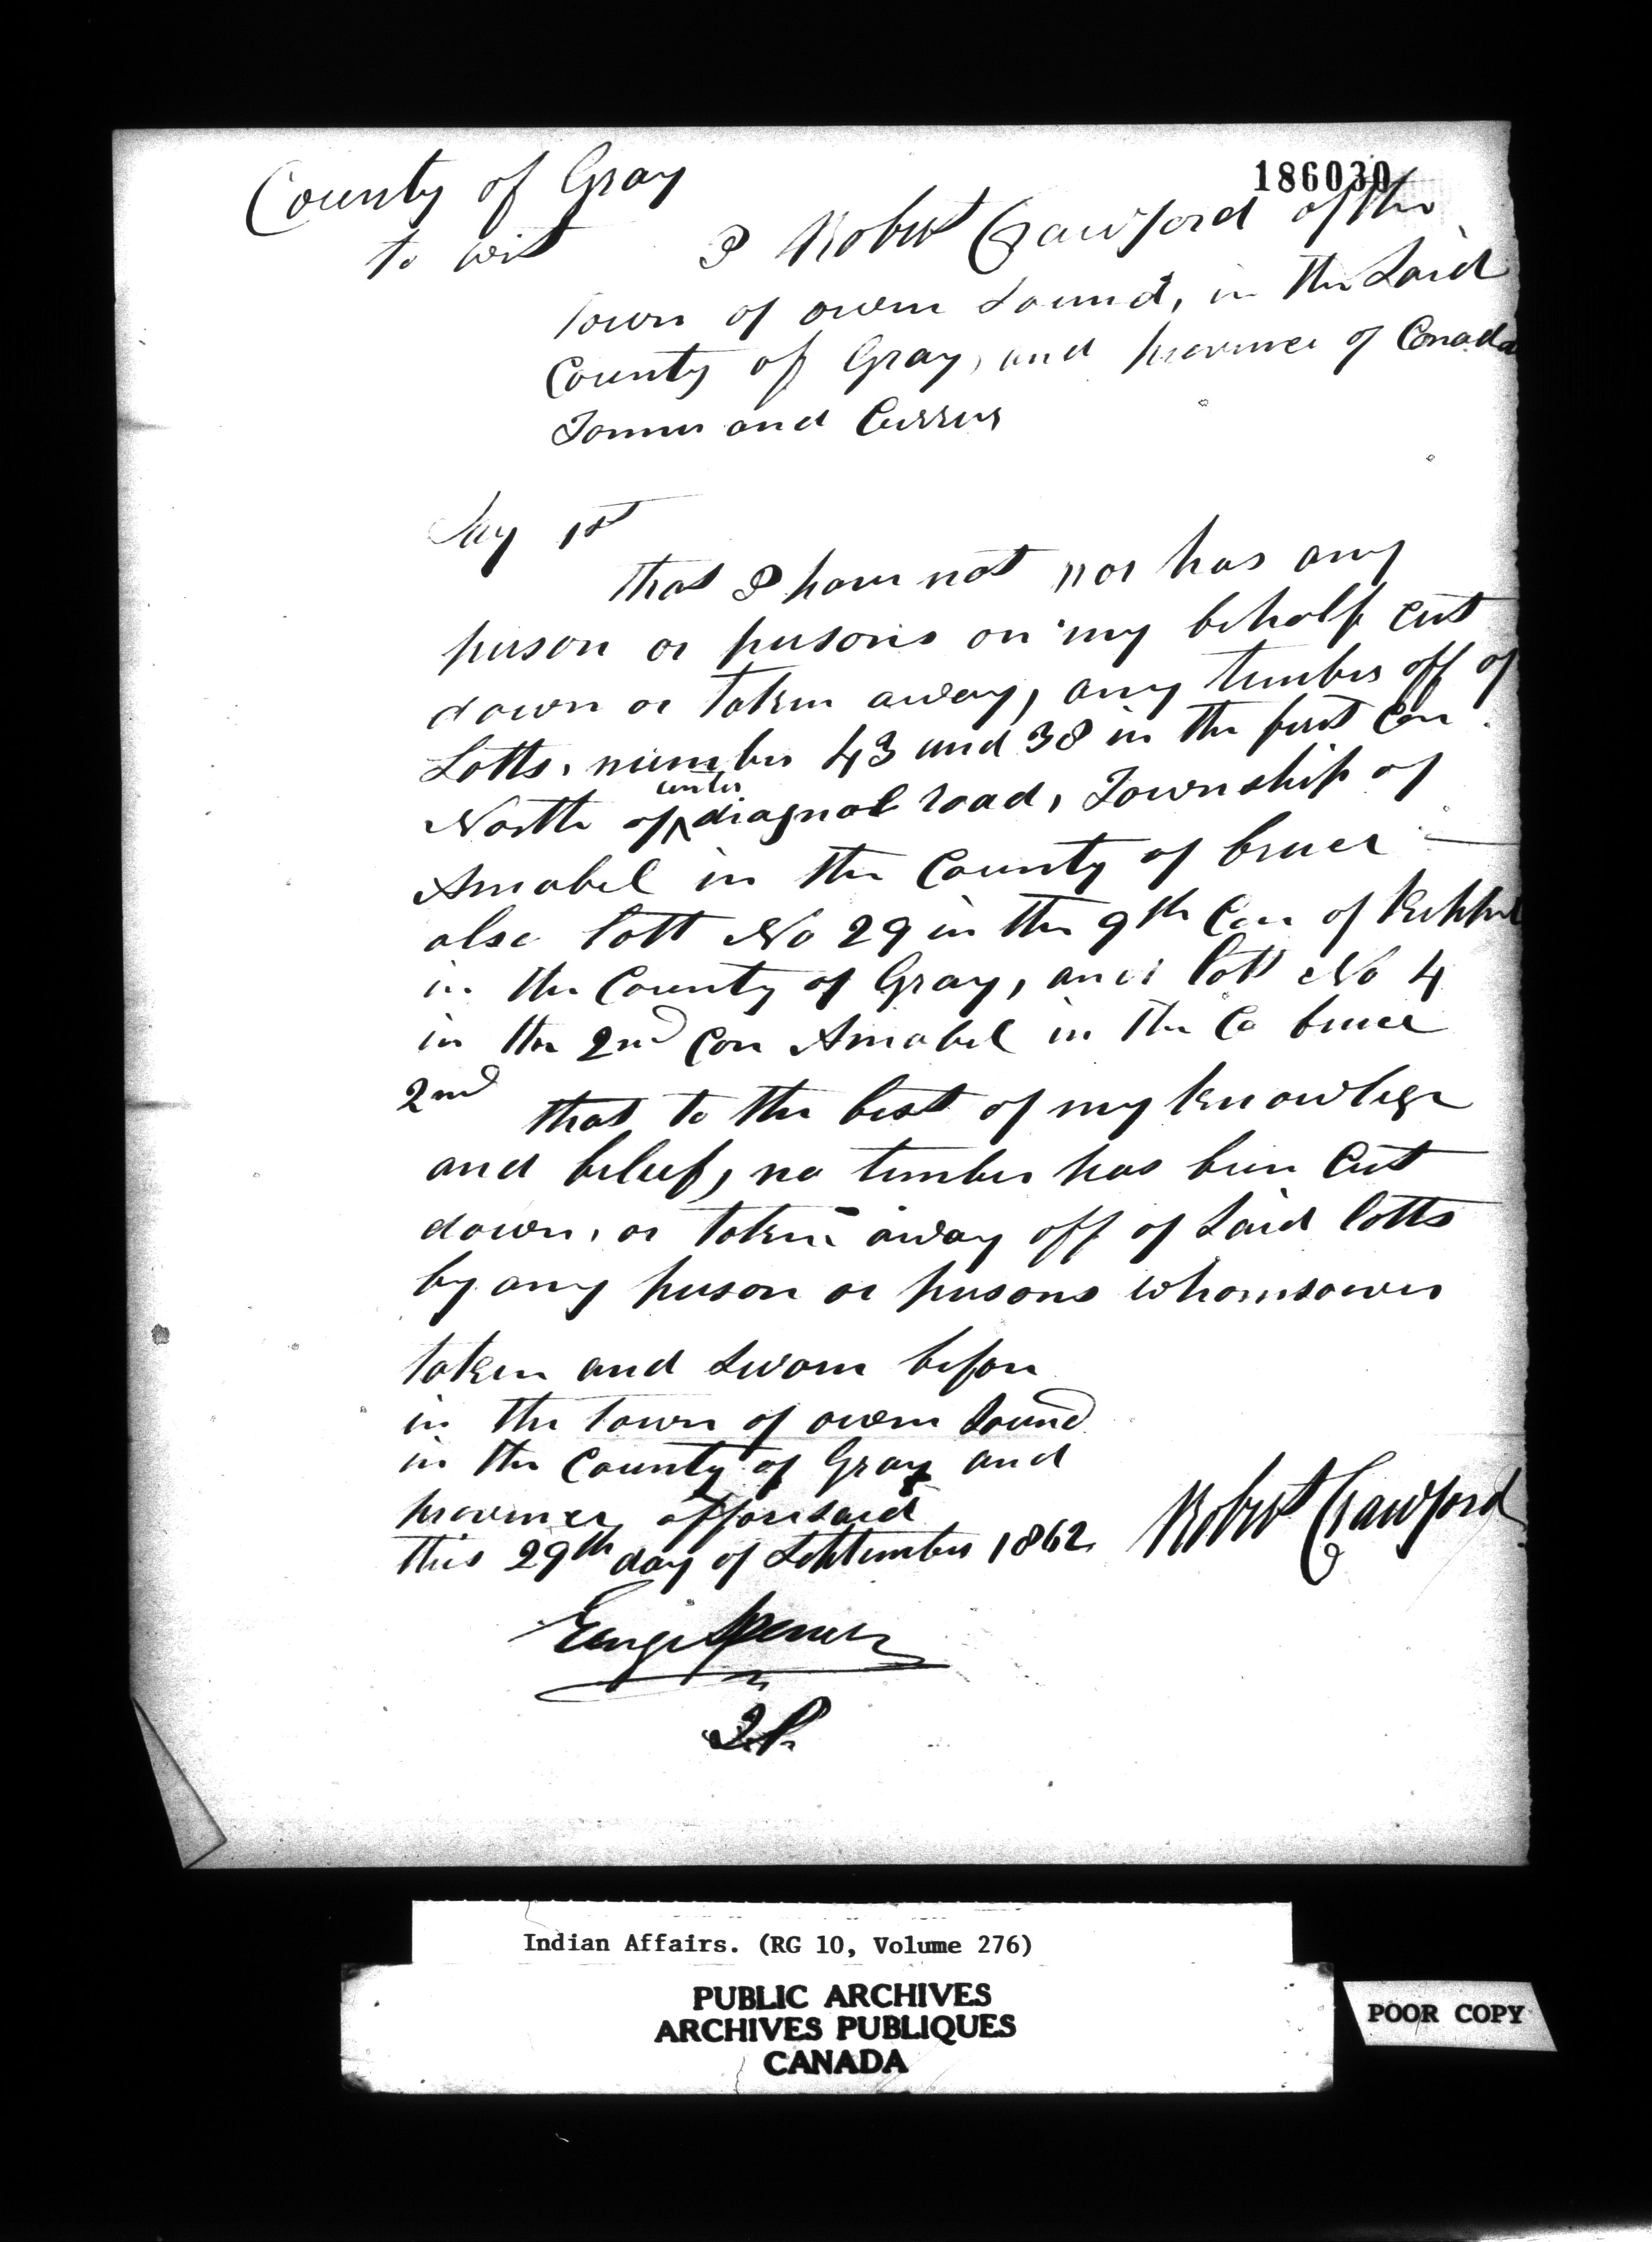 186030
County of Gray
to wit I Robert Crawford of the
town of owen Sound, in the Said
County of Gray, and province of Canada
Tanner and Currier
Say 1st
that I have not nor has any
person or persons on my behalf cut
down or taken away, any timber off of
Lotts, number 43 and 38 in the first Con
center
North of ^ diagnol road, Township of
Amabel in the County of bruce —
also lott No 29 in the 9th Con of Keppel
in the County of Gray, and lott No 4
in the 2nd Con Amabel in the Co bruce
2nd that to the best of my knowlege
and beleef, no timber has been Cut
down, or taken away off of Said lotts
by any person or persons whomsoever
taken and Sworn before
in the town of owen Sound
in the County of Gray and
province afforesaid
this 29th day of September 1862 Robert Crawford
Spencer
J.P.
Indian Affairs. (RG 10, Volume 276)
PUBLIC ARCHIVES
ARCHIVES PUBLIQUES
CANADA
POOR COPY